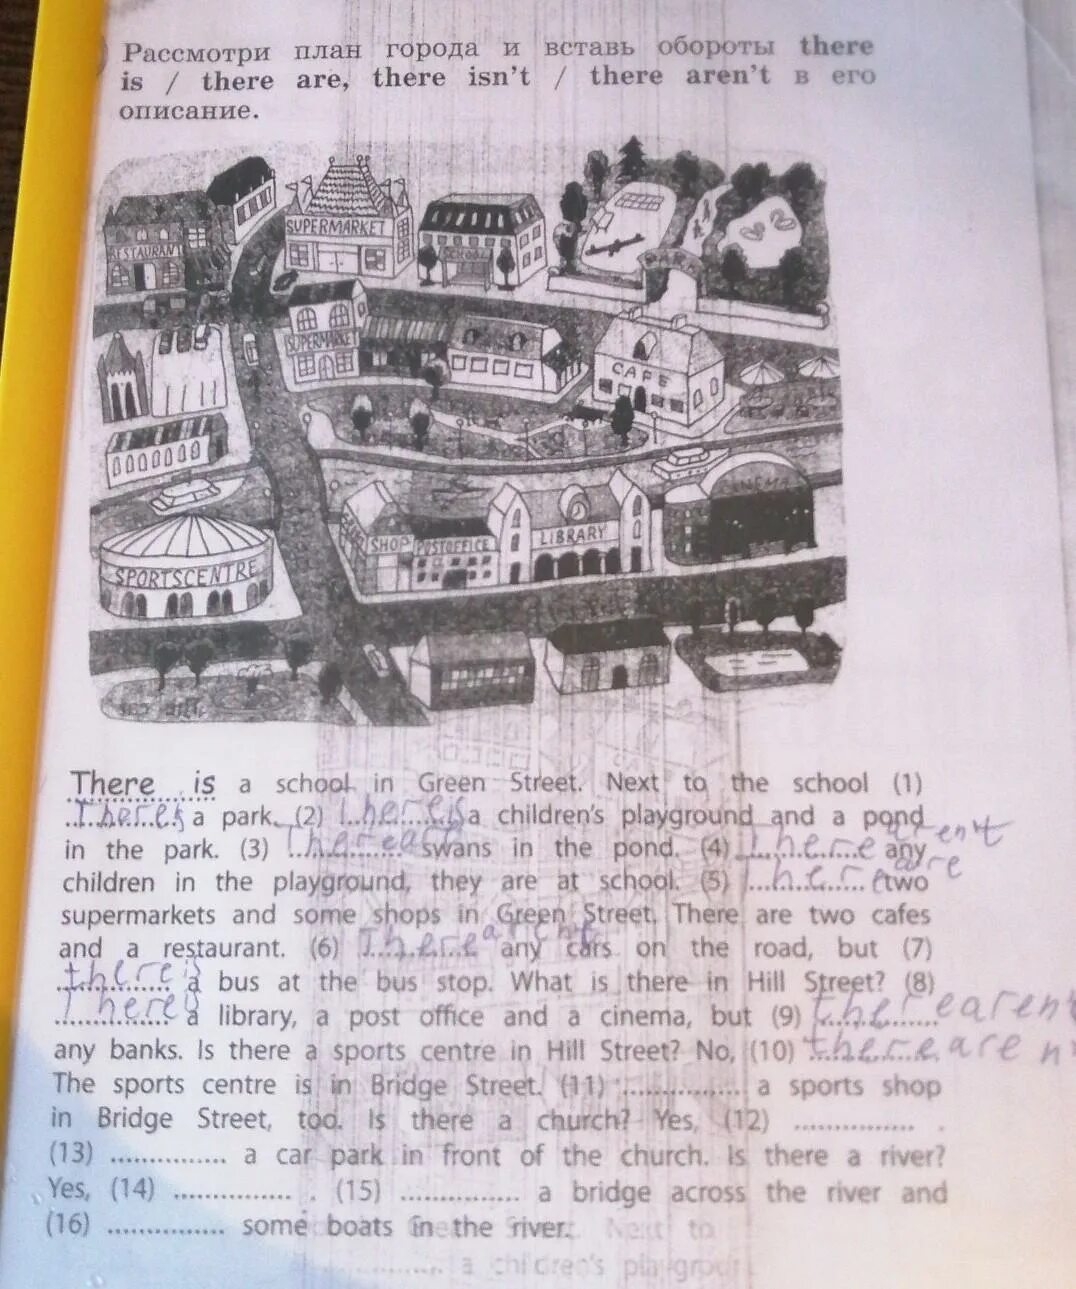 Рассмотри план города и вставь обороты there
is / there are, there isn't / there aren't в его
описание.
RESTAURANT
SUPERMARKET
SCHOOL
PARK
SUPERMARKET
CAFE
CINEMA
SHOP
POSTOFFICE
LIBRARY
SPORTSCENTRE
There is a school in Green Street. Next to the school (1)
There is a park. (2) There is a children's playground and a pond
in the park. (3) There are swans in the pond. (4) There aren't any
children in the playground, they are at school. (5) There are two
supermarkets and some shops in Green Street. There are two cafes
and a restaurant. (6) There aren't any cars on the road, but (7)
there is a bus at the bus stop. What is there in Hill Street? (8)
There is a library, a post office and a cinema, but (9) there arent
any banks. Is there a sports centre in Hill Street? No, (10) there are n'
The sports centre is in Bridge Street. (11) ............... a sports shop
in Bridge Street, too. Is there a church? Yes, (12) ............... .
(13) ............... a car park in front of the church. Is there a river?
Yes, (14) ............... . (15) ............... a bridge across the river and
(16) ............... some boats in the river.